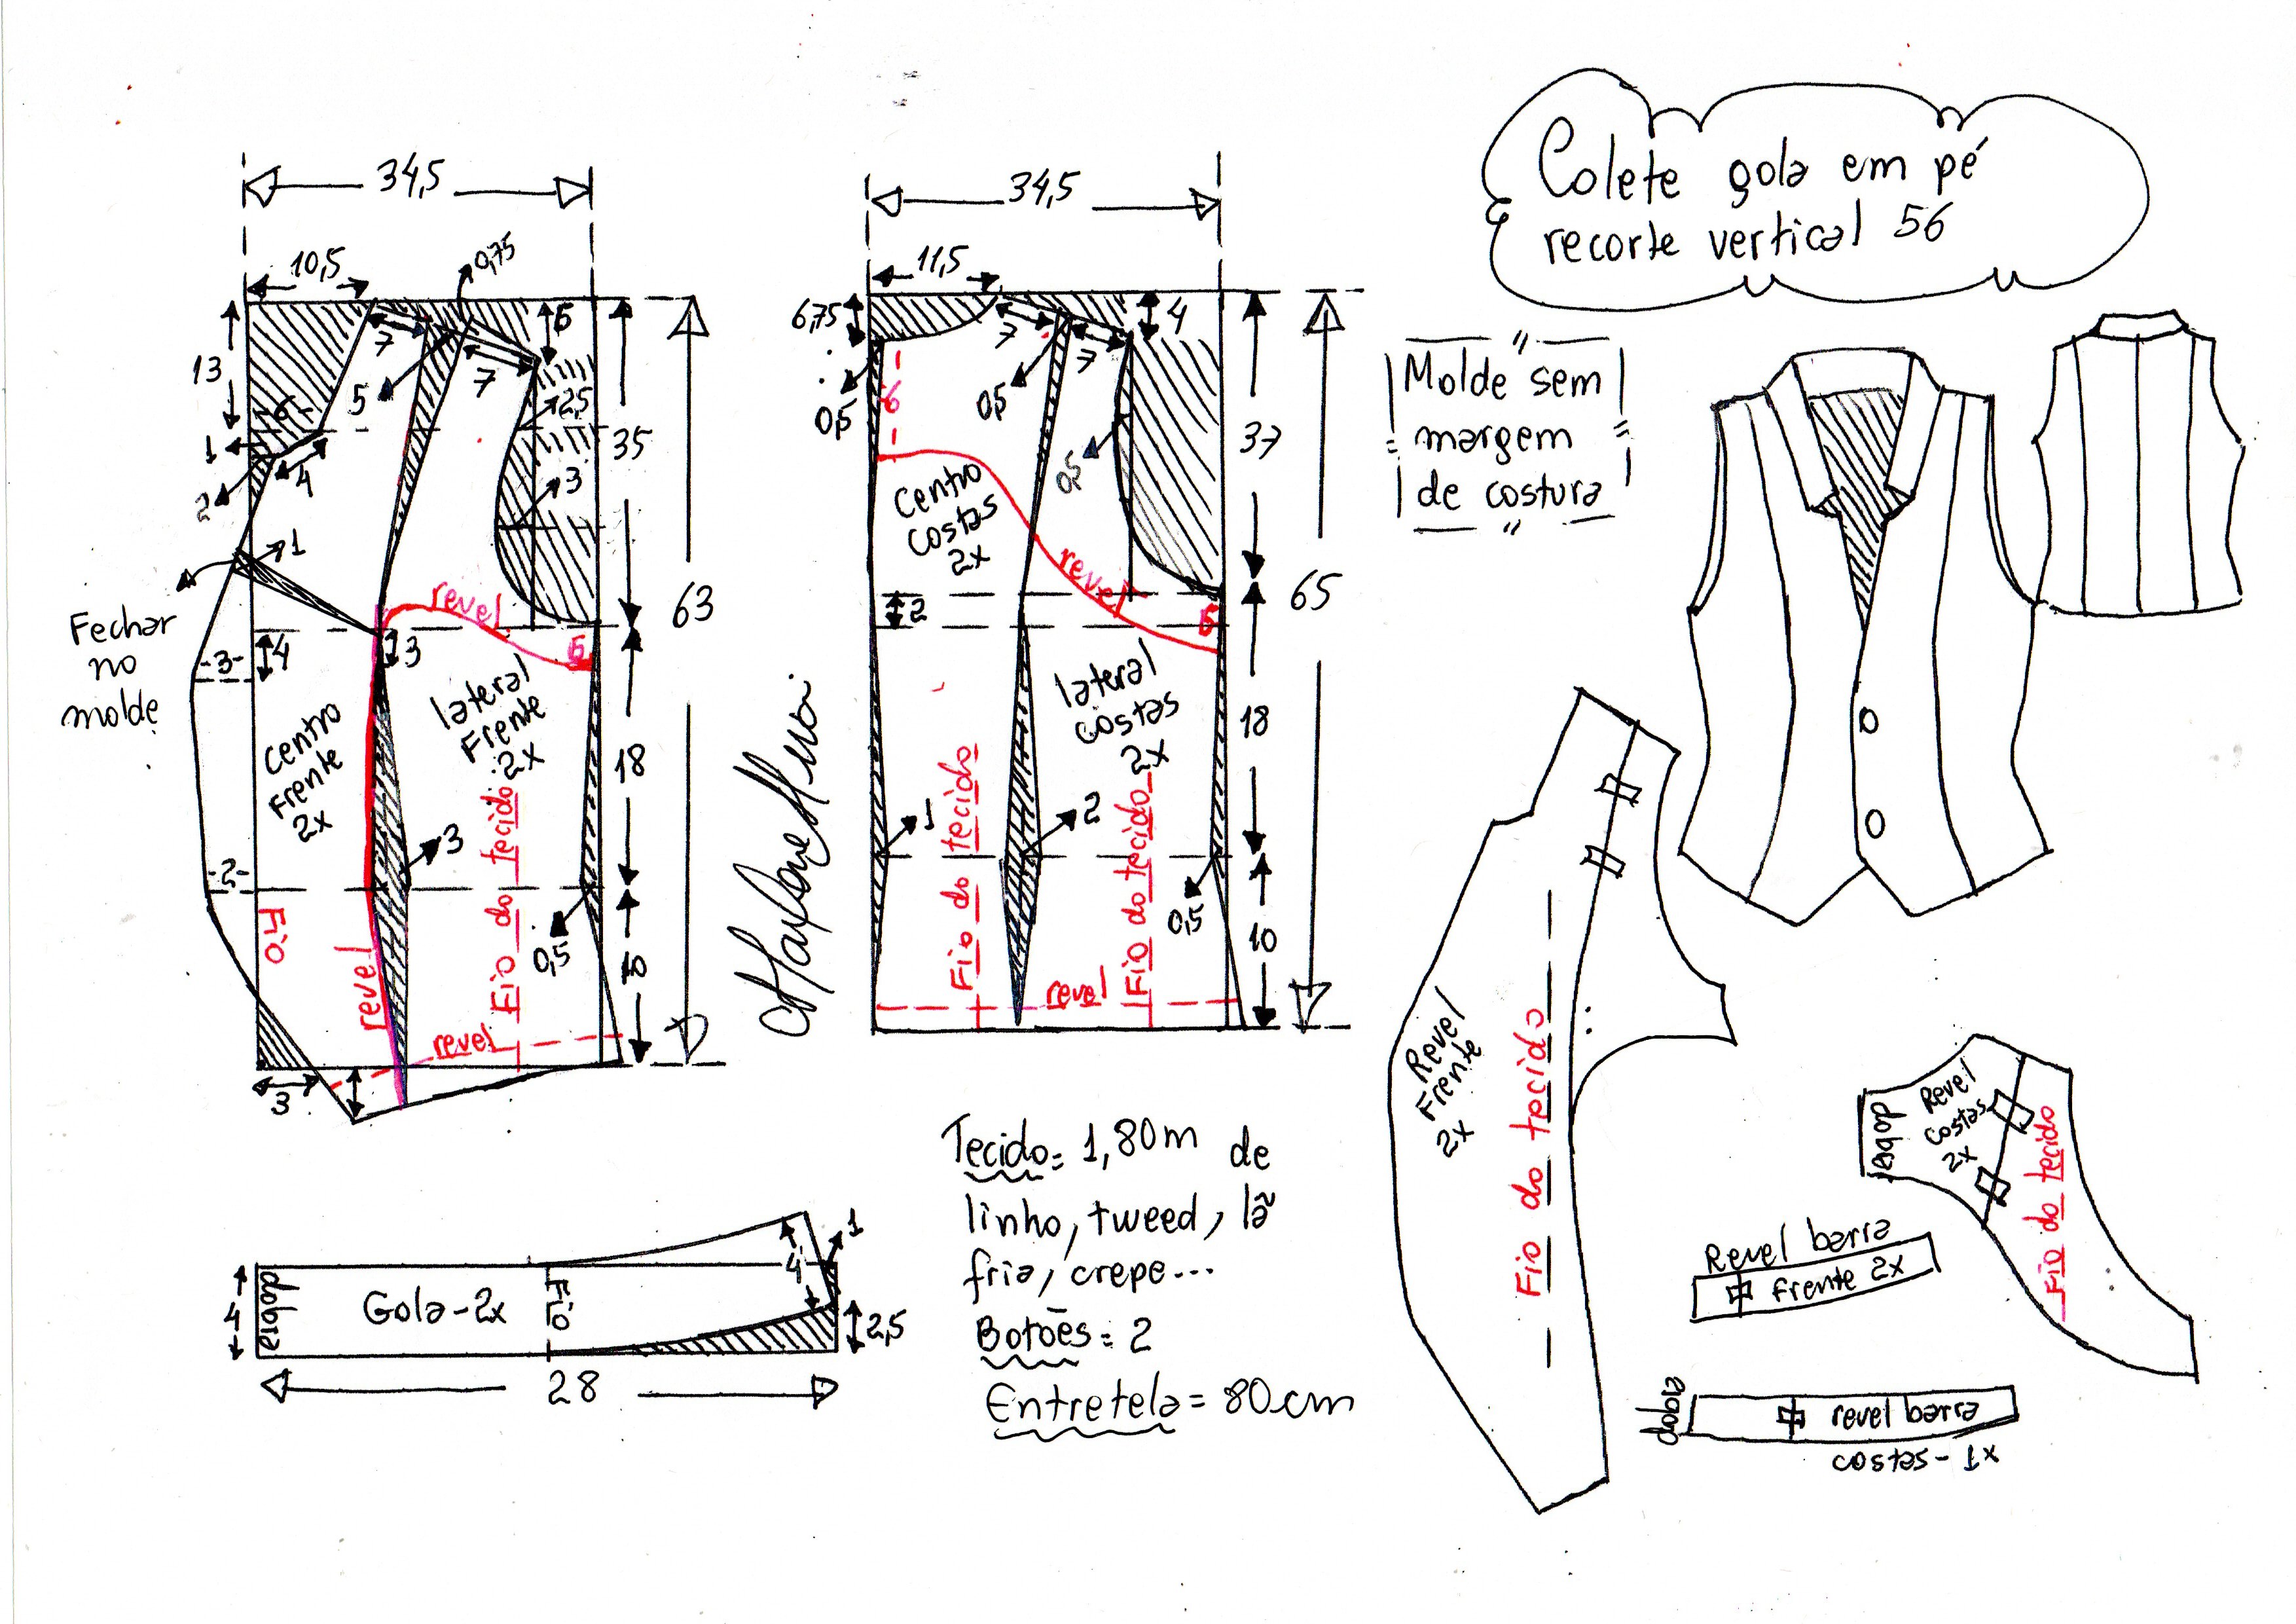 Colete gola em pé
recorte vertical 56
"Molde sem
margem
de costura"
34,5
10,5
0,75
13
7
5
6
7
5
2,5
35
1
4
2
3
1
63
Fechar
no
molde
revel
-3-
4
3
6
centro
Frente
2x
lateral
Frente
2x
18
3
-2-
Fio
revel
Fio do tecido
0,5
10
revel
3
34,5
11,5
6,75
7
7
4
0,5
6
0,5
0,5
37
centro
costas
2x
revel
2
6
65
lateral
costas
2x
18
1
2
Fio do tecido
Fio do tecido
0,5
10
revel
4
dobra
Gola-2x
Fio
4
1
2,5
28
Tecido= 1,80m de
linho, tweed, lã
fria, crepe...
Botões= 2
Entretela= 80cm
Revel
Frente
2x
Fio do tecido
dobra
Revel
costas
2x
Fio do tecido
Revel barra
frente 2x
dobra
revel barra
costas-1x